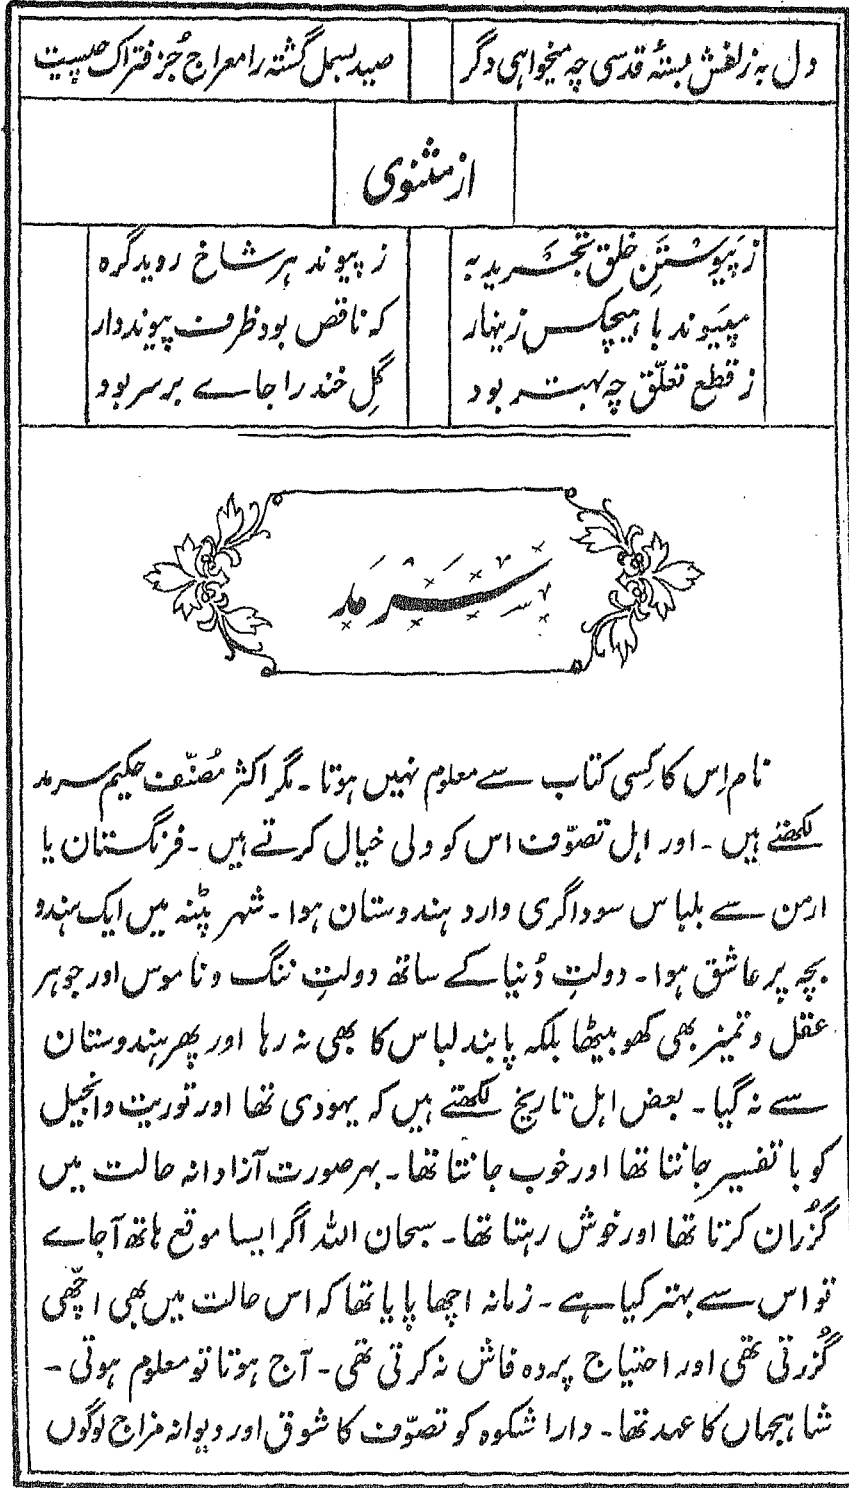 دل بہ زلفش بستۂ قدسی چہ میخواہی دگر صید بسمل گشتہ را معراج جُز فتراک چیست
از مثنوی
ز پَیوستَنِ خلق تجَرید بہ ز پیوند ہر شاخ روید گرہ
مپیَوند با ہیچکس زینہار کہ ناقص بود ظرف پیوند دار
ز قطع تعلّق چہ بہتر بود گُلِ خند را جاے بر سر بود
سَرمَد
نام اِس کا کِسی کتاب سے معلوم نہیں ہوتا ۔ مگر اکثر مُصنّف حکیم سرمد
لکھتے ہیں ۔ اور اہل تصوّف اس کو ولی خیال کرتے ہیں ۔ فرنگستان یا
ارمن سے بلباس سوداگری وارد ہندوستان ہوا ۔ شہر پٹنہ میں ایک ہندو
بچہ پر عاشق ہوا ۔ دولتِ دُنیا کے ساتھ دولتِ ننگ و ناموس اور جوہر
عقل و تمیز بھی کھو بیٹھا بلکہ پابند لباس کا بھی نہ رہا اور پھر ہندوستان
سے نہ گیا ۔ بعض اہل تاریخ لکھتے ہیں کہ یہودی تھا اور توریت و انجیل
کو با تفسیر جانتا تھا اور خوب جانتا تھا ۔ بہر صورت آزادانہ حالت میں
گُزران کرتا تھا اور خوش رہتا تھا ۔ سبحان اللہ اگر ایسا موقع ہاتھ آجاے
تو اس سے بہتر کیا ہے ۔ زمانہ اچھا پایا تھا کہ اس حالت میں بھی اچّھی
گُزرتی تھی اور احتیاج پردہ فاش نہ کرتی تھی ۔ آج ہوتا تو معلوم ہوتی ۔
شاہجہاں کا عہد تھا ۔ دارا شکوہ کو تصوّف کا شوق اور دیوانہ مزاج لوگوں